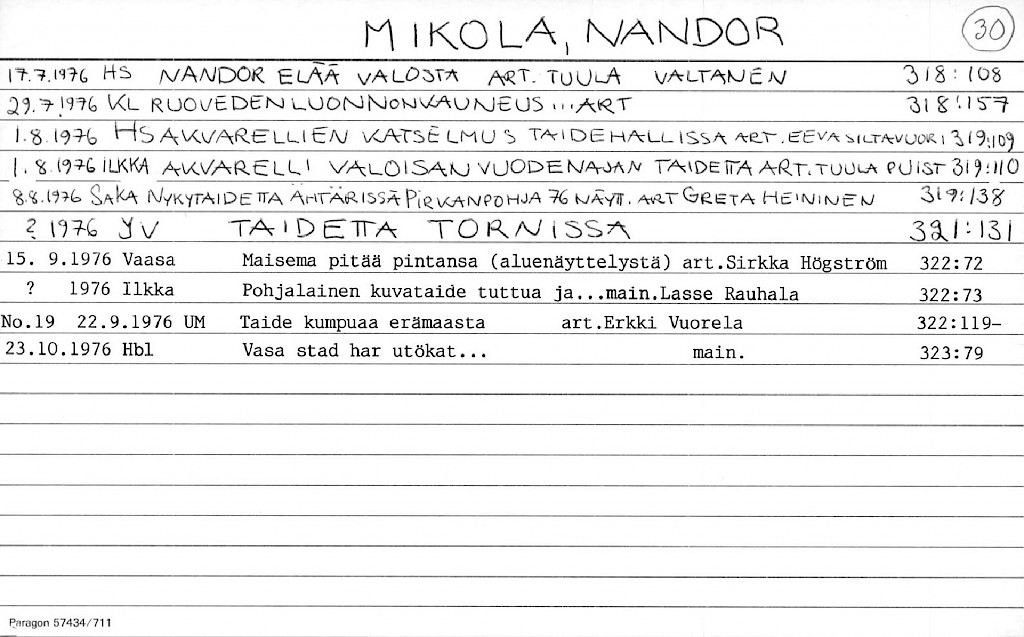 MIKOLA, NANDOR 30
17.7.1976 HS NANDOR ELÄÄ VALOSTA ART. TUULA VALTANEN 318:108
29.7.1976 KL RUOVEDEN LUONNONKAUNEUS ... ART 318:157
1.8.1976 HS AKVARELLIEN KATSELMUS TAIDEHALLISSA ART. EEVA SILTAVUORI 319:109
1.8.1976 ILKKA AKVARELLI VALOISAN VUODENAJAN TAIDETTA ART. TUULA PUIST 319:110
8.8.1976 SAKA NYKYTAIDETTA ÄHTÄRISSÄ PIRKANPOHJA 76 NÄYTT. ART GRETA HEININEN 319:138
? 1976 YV TAIDETTA TORNISSA 321:131
15. 9.1976 Vaasa Maisema pitää pintansa (aluenäyttelystä) art.Sirkka Högström 322:72
? 1976 Ilkka Pohjalainen kuvataide tuttua ja...main.Lasse Rauhala 322:73
No.19 22.9.1976 UM Taide kumpuaa erämaasta art.Erkki Vuorela 322:119-
23.10.1976 Hbl Vasa stad har utökat... main. 323:79
Paragon 57434/711